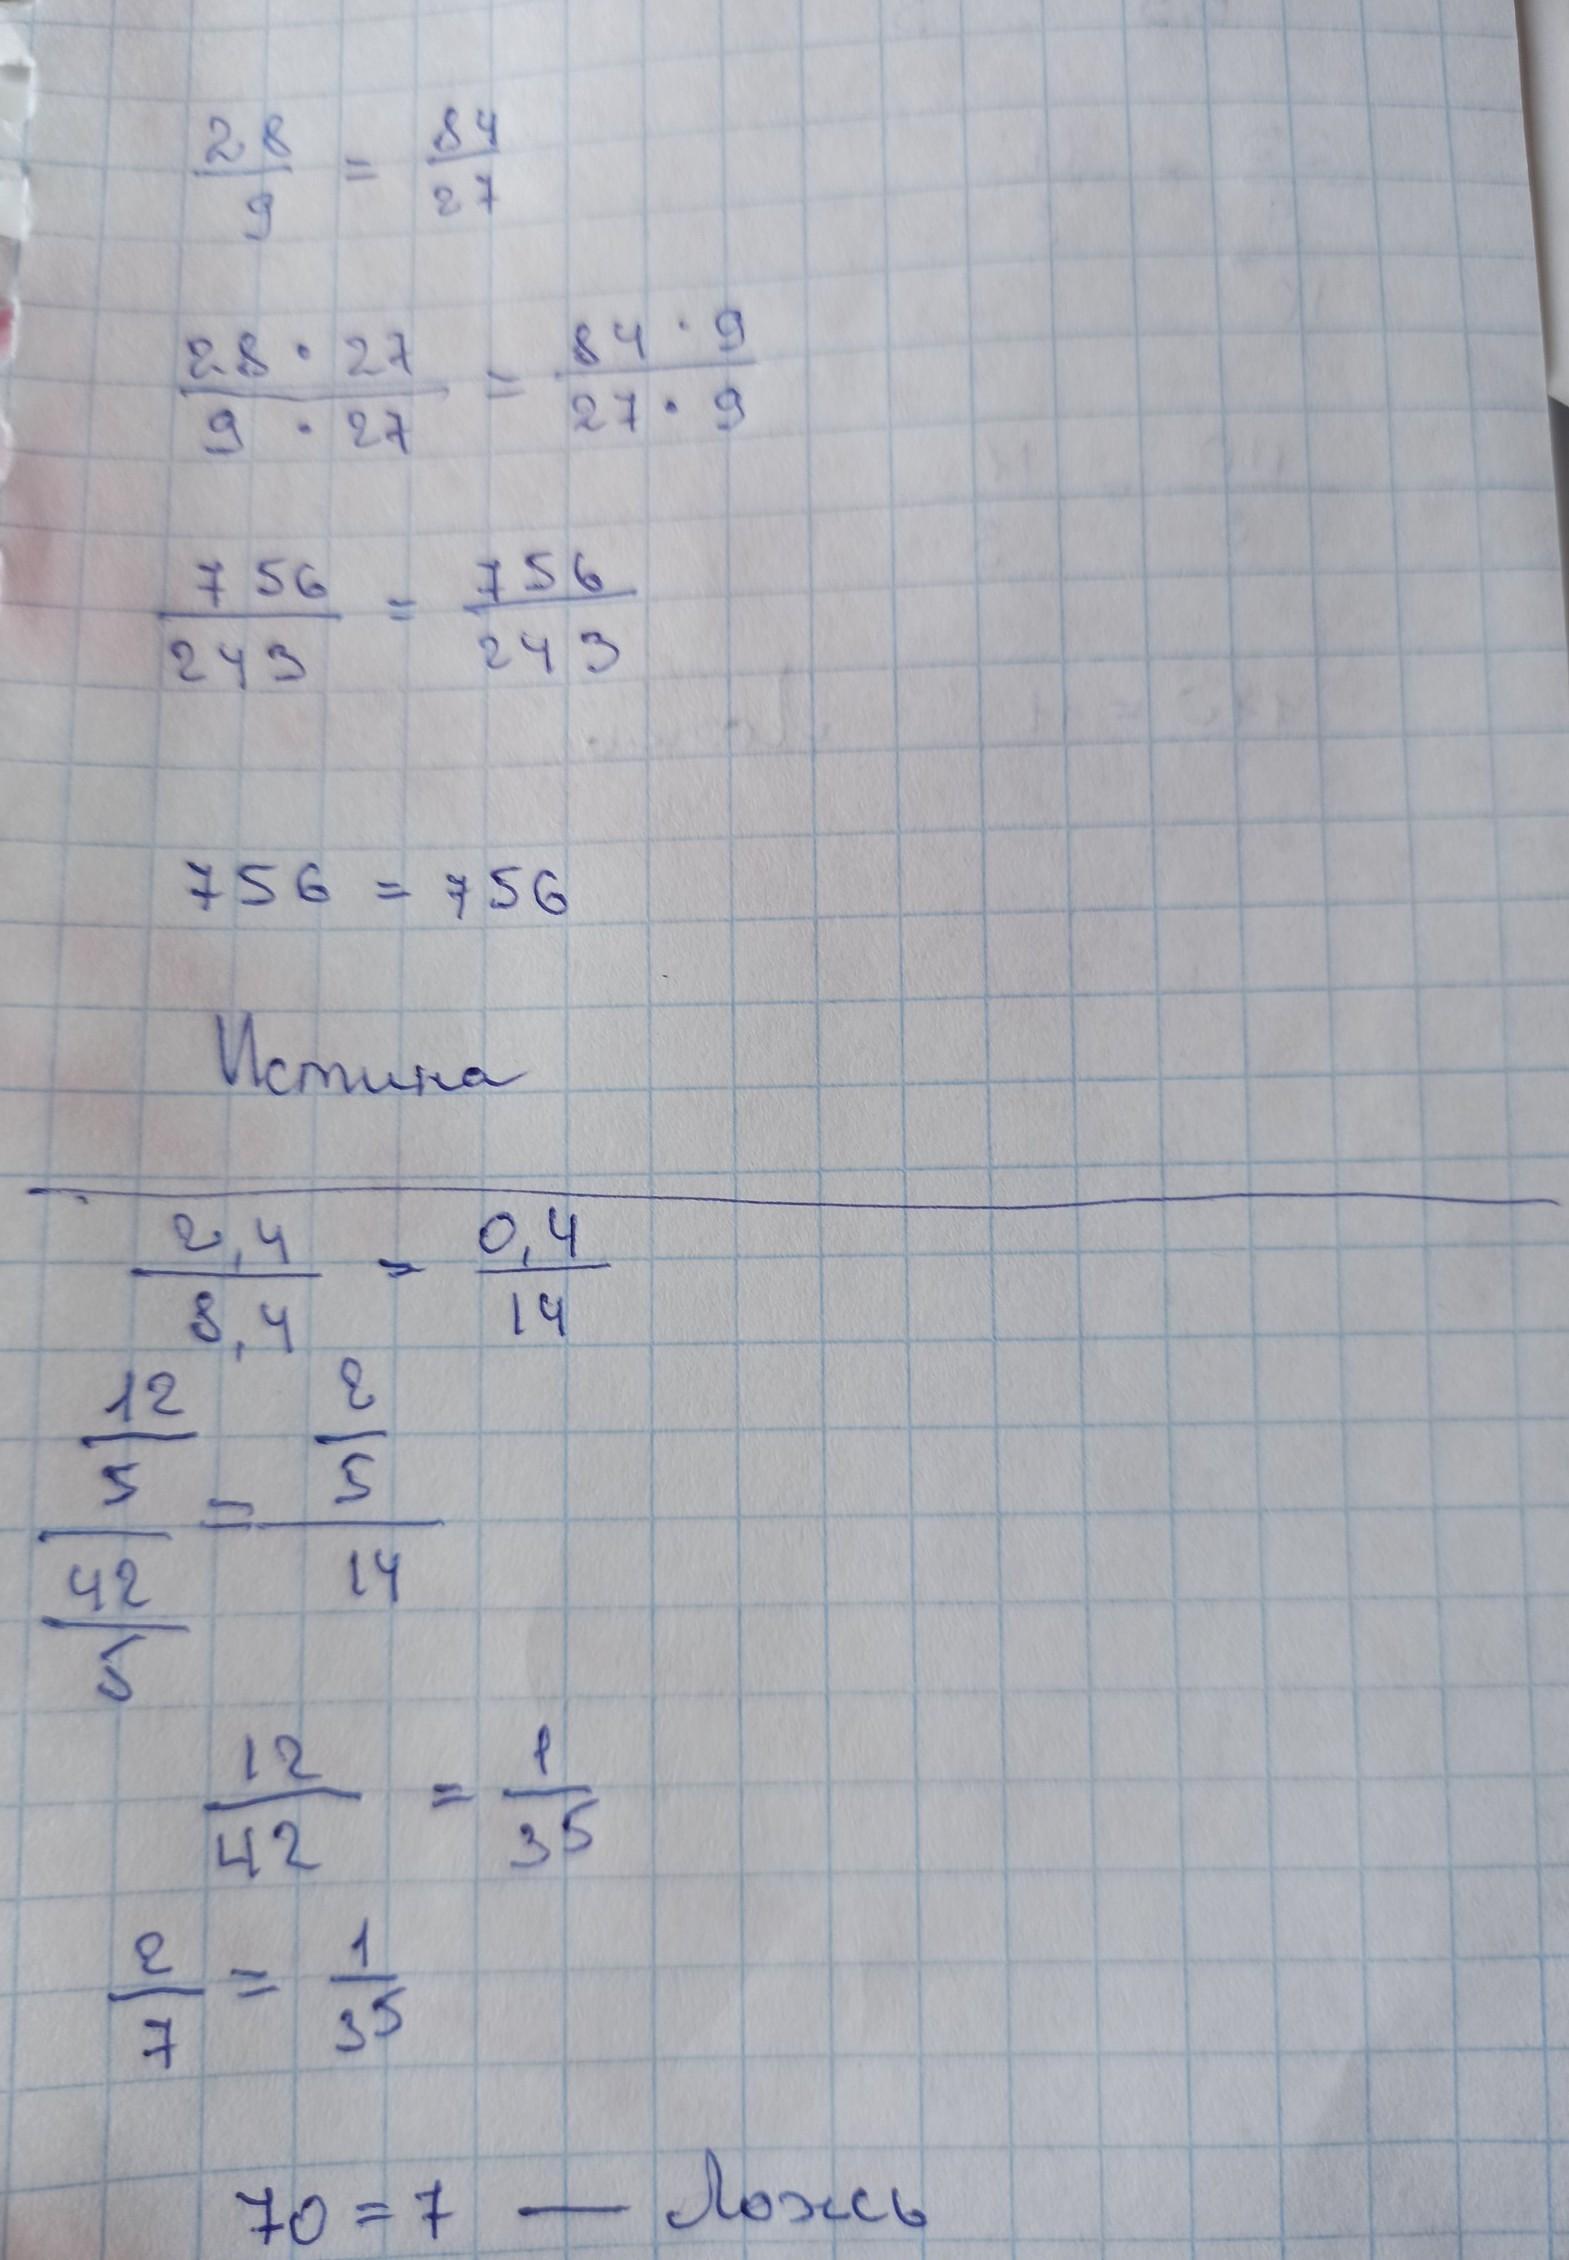 28/9 = 84/27
28 · 27/9 · 27 = 84 · 9/27 · 9
756/243 = 756/243
756 = 756
Истина
2,4/8,4 = 0,4/14
12/5/42/5 = 2/5/14
12/42 = 1/35
2/7 = 1/35
70 = 7 — Ложь